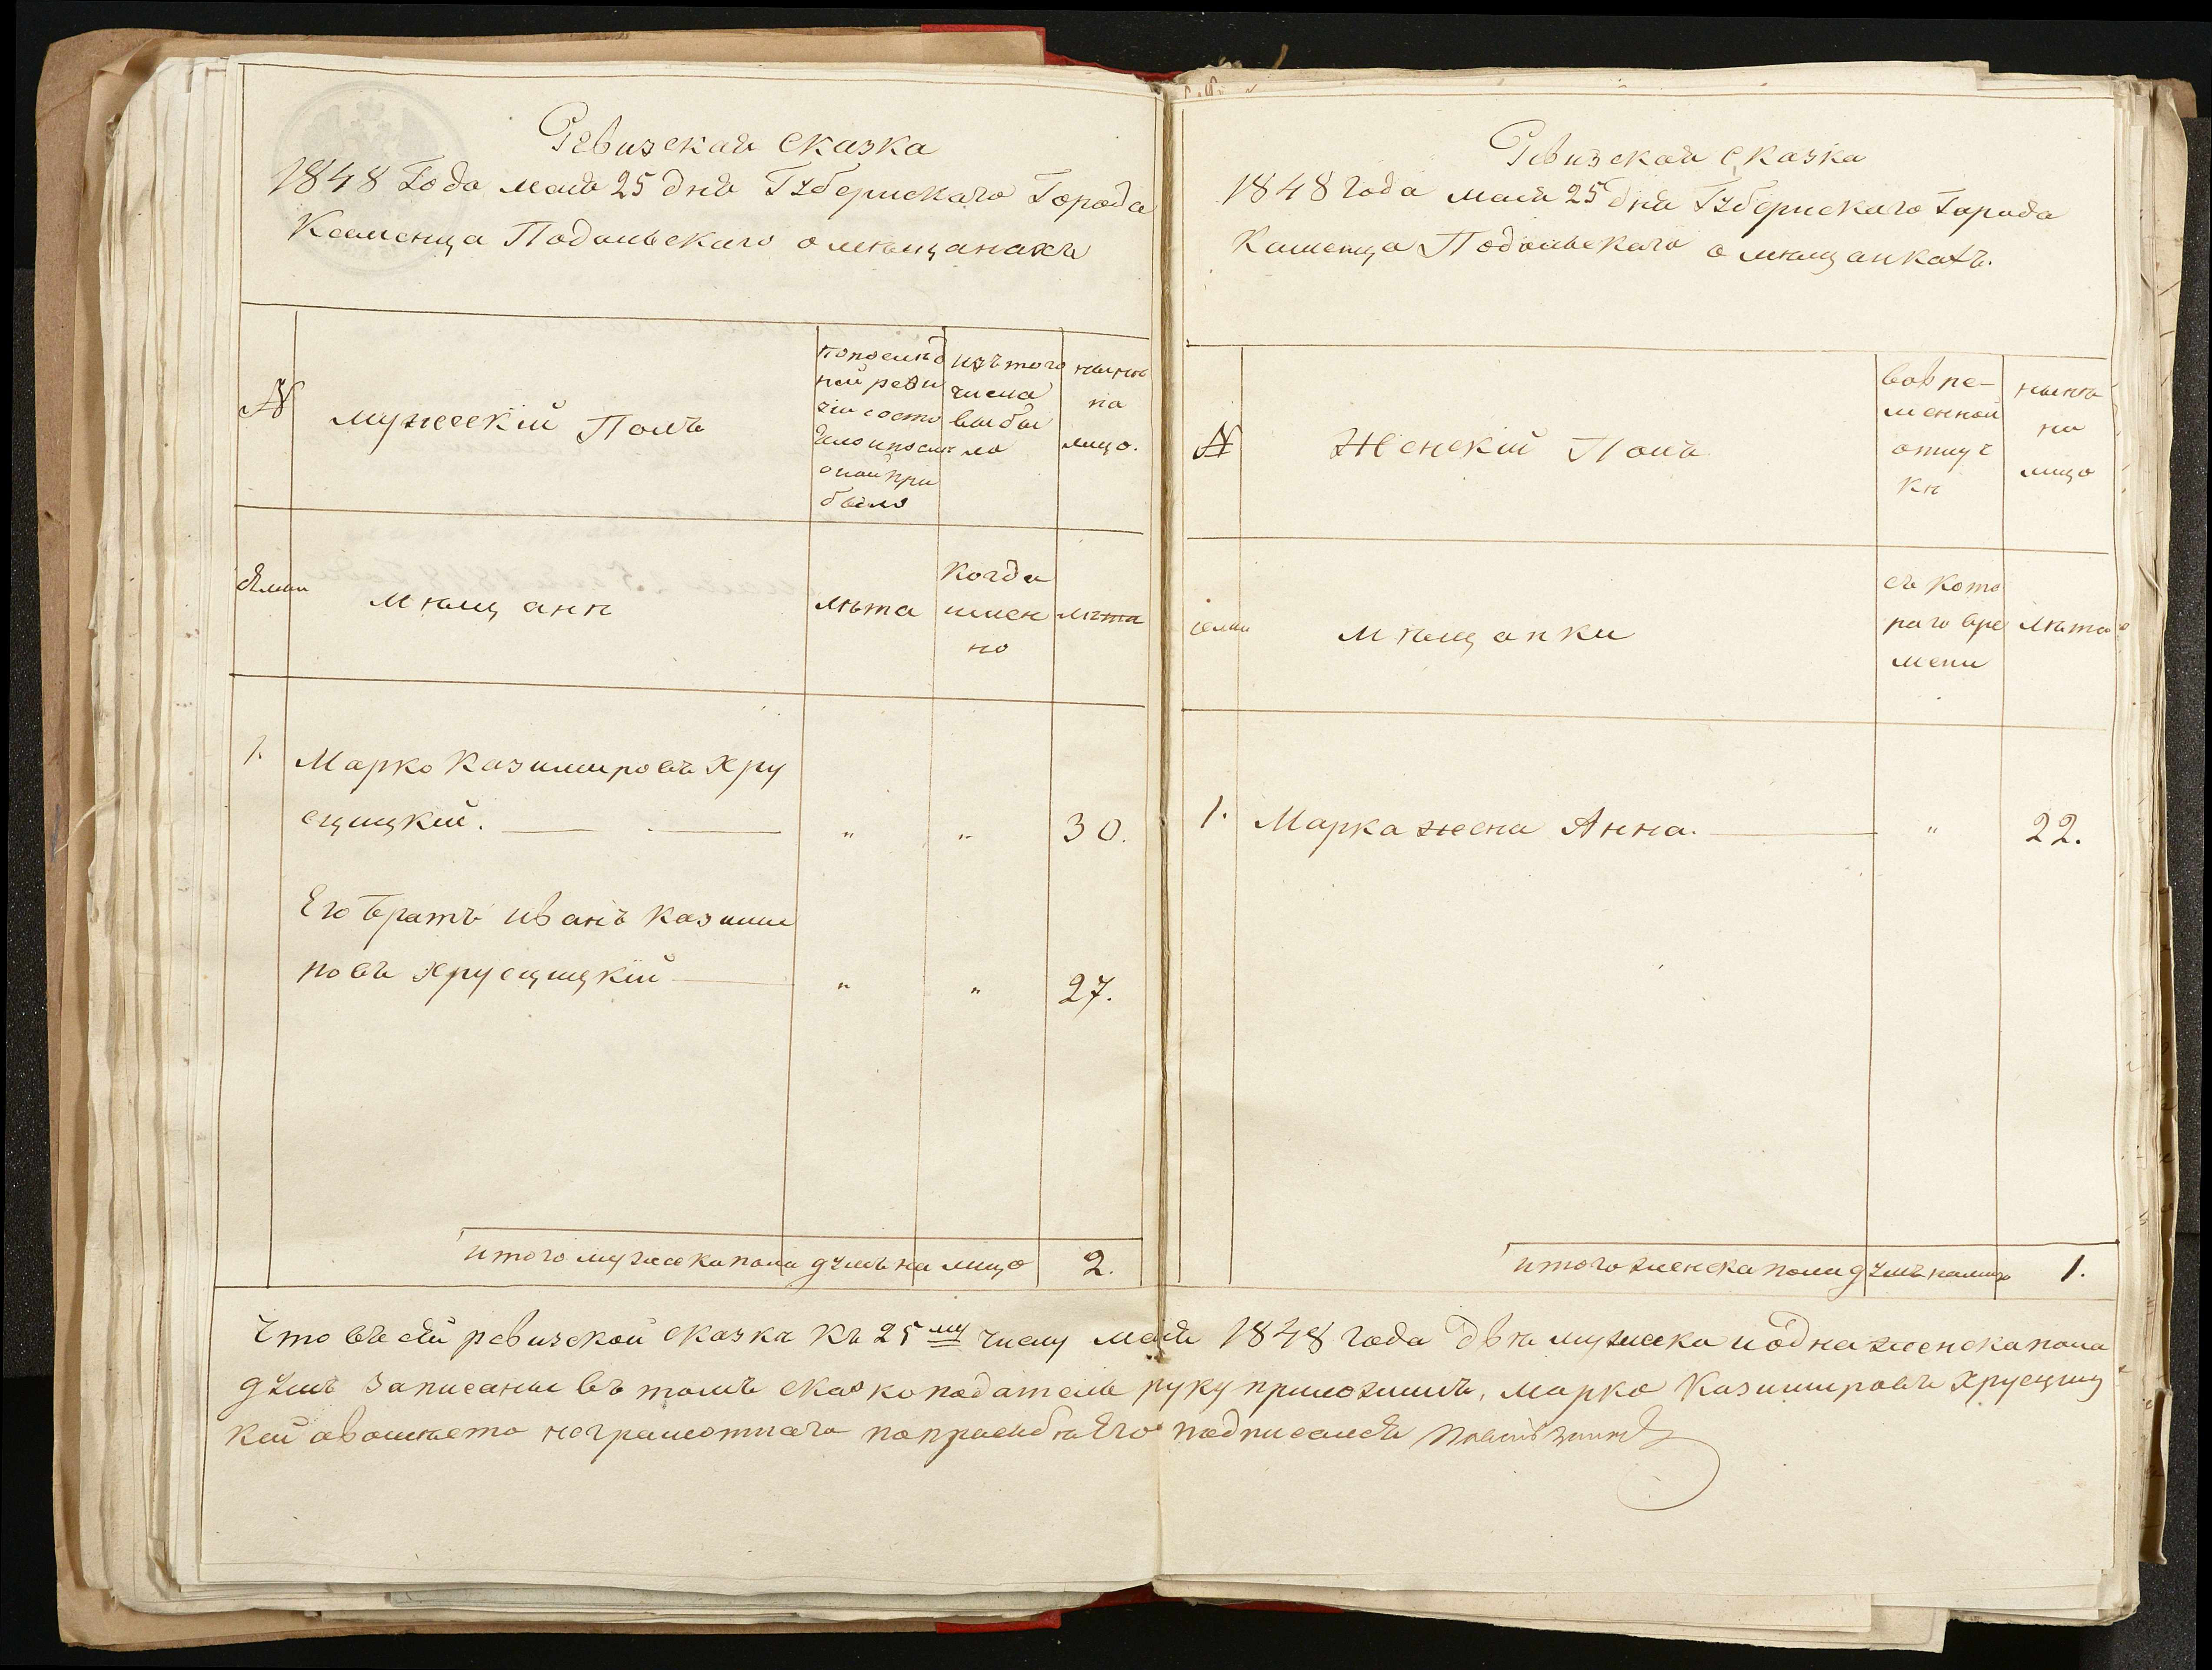 Ревизская сказка
1848 Года мая 25 дня Губернскаго Города
Каменца Подольскаго о мѣщанахъ
№
мужескій Полъ
попослѣд
ней реви
зіи состо
яло и послѣ
оной при
было
изъ того
числа
выбы
ло
нынѣ
на
лицо.
мѣщанѣ
лѣта
когда
имен
но
лѣта
1.
Марко Казимировъ Хру
сцицкій.
"
"
30.
Его Братъ иванъ казими
ровъ хрусцицкій
"
"
27.
итого мужеска пола душъ на лицо
2.
Ревизская сказка
1848 года мая 25 дня Губернскаго Города
Каменца Подольскаго о мѣщанкахъ.
№
Женскій Полъ
вовре-
менной
отлуч
кѣ
нынѣ
на
лицо
мѣщанки
съ кото
раго вре
мени
лѣта
1.
Марка жена Анна.
"
22.
итого женска пола душъ налицо
1.
Что въ сей ревизской сказкѣ къ 25му числу мая 1848 года двѣ мужска и одна женска пола
душъ записаны въ томъ сказкоподатель руку приложилъ, Марко Казимировъ Хрусциц
кій авомѣсто неграмотнаго попросьбѣ Его подписался